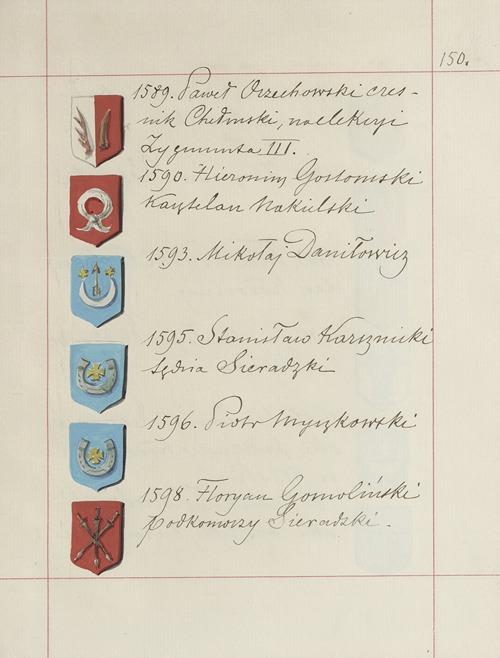 150.
1589. Paweł Orzechowski cześ-
nik Chełmski, na elekcyi
Zygmunta III.
1590. Hieronim Gostomski
Kasztelan Nakielski
1593. Mikołaj Daniłowicz
1595. Stanisław Karsznicki
Sędzia Sieradzki
1596. Piotr Myszkowski
1598. Floryan Gomoliński
Podkomorzy Sieradzki.